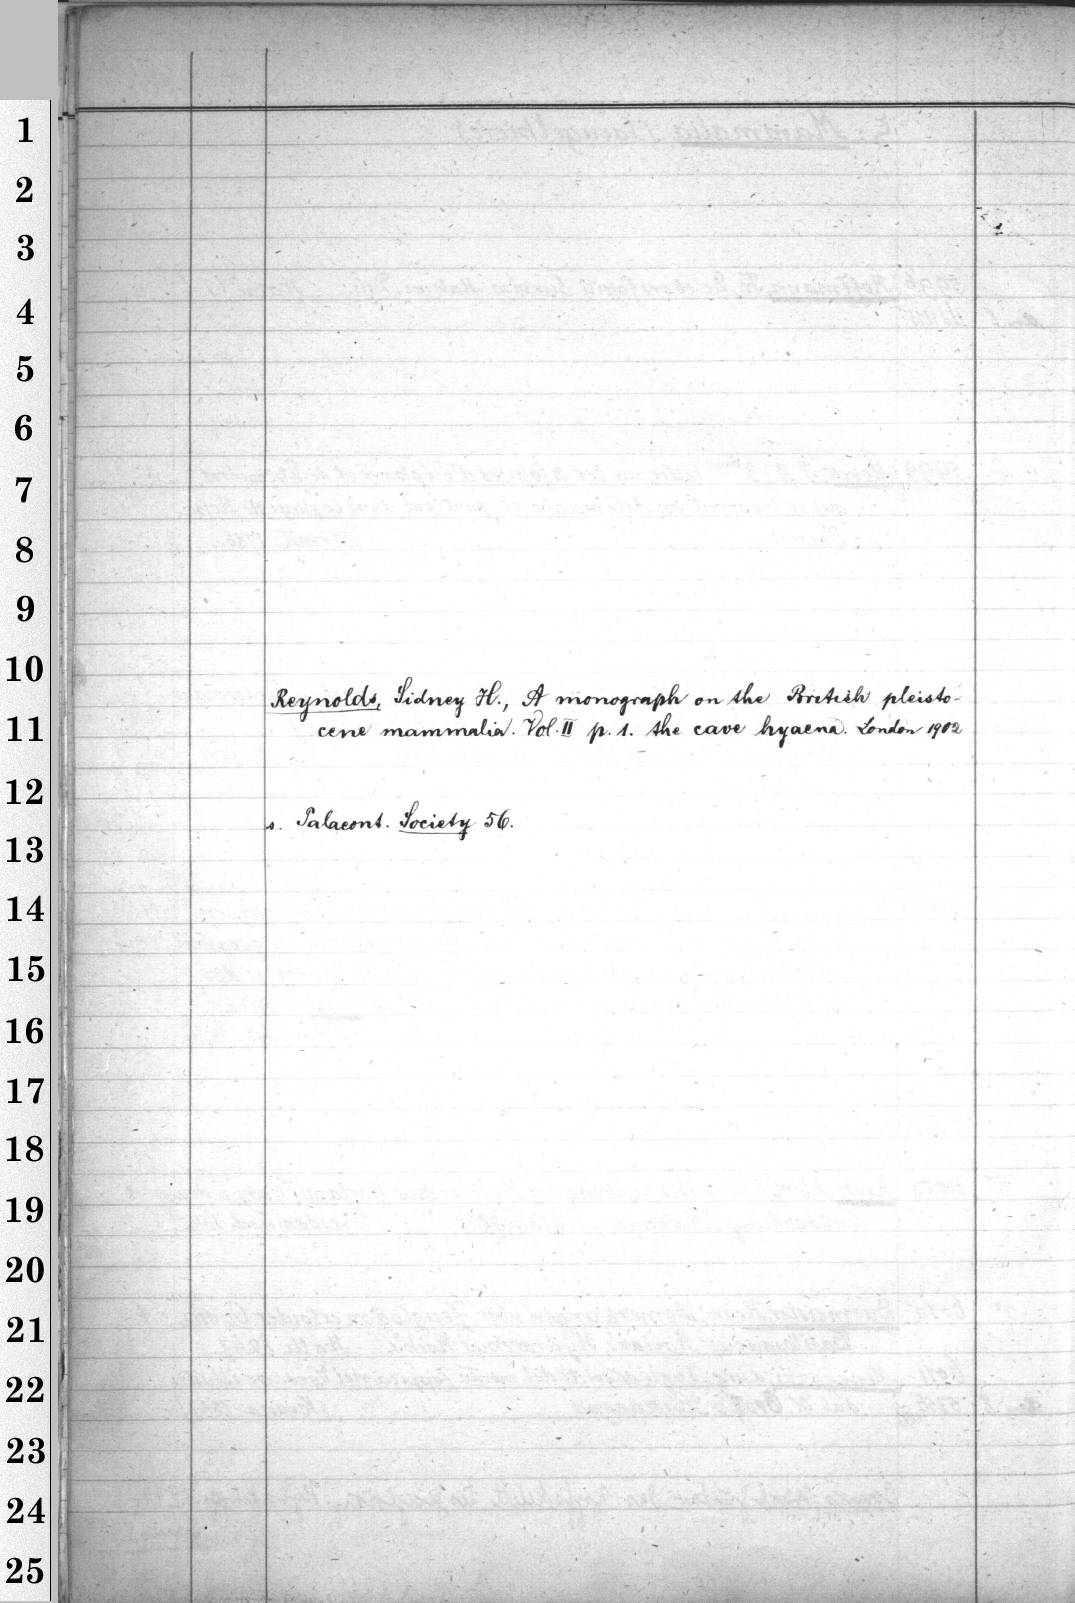 1
2
3
4
5
6
7
8
9
10
Reynolds, Sidney H., A monograph on the British pleisto-
11
cene mammalia. Vol. II p. 1. the cave hyaena. London 1902
12
s. Palaeont. Society 56.
13
14
15
16
17
18
19
20
21
22
23
24
25